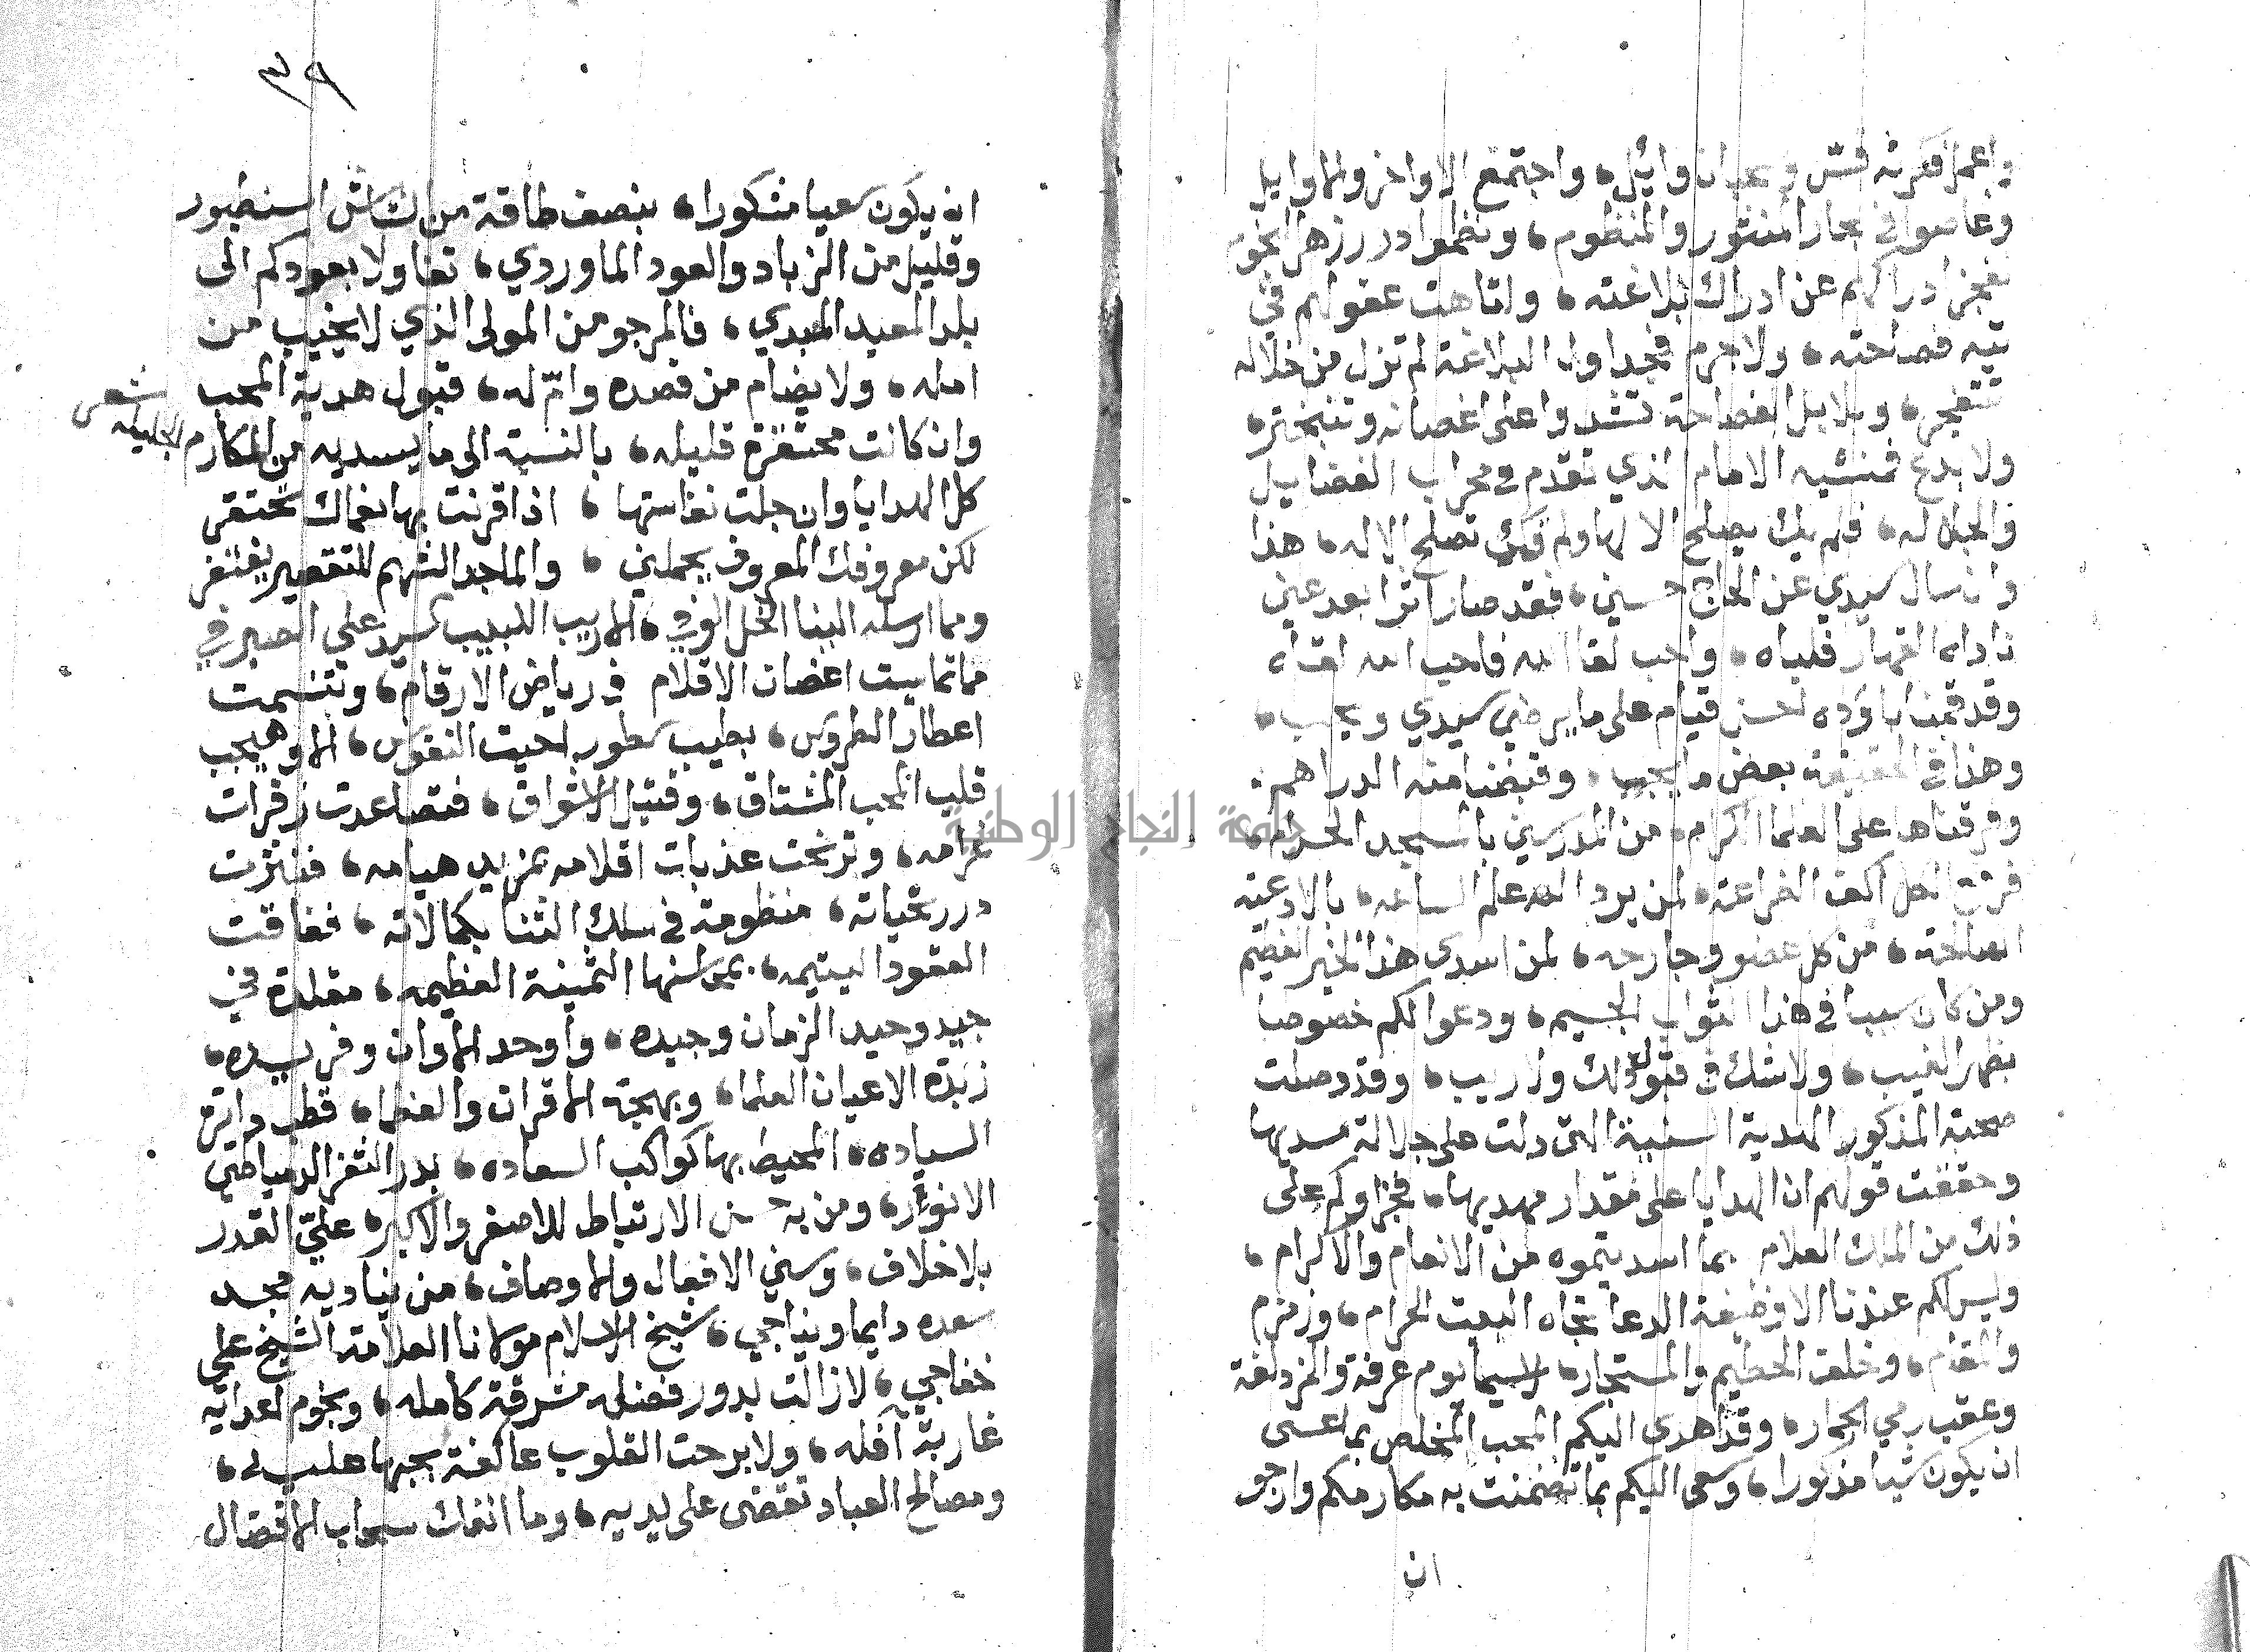 واعمل فكرته قسّ وسحبان وائل، واجتمع الاواخر والاوايل
وغاصوا في بحار المنثور والمنظوم، ونظموا درر زهر النجوم
لعجز ادراكهم عن ادراك بلاغته، ولتاهت عقولهم في
تيه فصاحته، ولا جرم فجداول البلاغة لم تزل من خلاله
تتفجر، وبلابل الفصاحة تشدوا على اغصانه وتتبختر،
ولا بدع فمنشيه الامام الذي تقدم في محراب الفضايل
والجلاله، فلم يك يصلح الا لها ولم تك تصلح الا له، هذا
وان سال سيدي عن الحاج حسين، فقد صار اثرا بعد عين
ناداه القهار فلباه، واحب لقا الله فاحب الله لقاه
وقد قمنا باوده احسن قيام على ما يرضي سيدي ويحب،
وهذا في الحقيقة بعض ما يجب، وقبضنا منه الدراهم.
وفرقناها على العلما الكرام، من المدرسين بالمسجد الحرام،
فرفع الكل اكف الضراعة، لمن يرد اليه علم الساعه، بالادعية
الصالحة، من كل عضو وجارحه، لمن اسدى هذا الخير العظيم
ومن كان سببا في هذا الثواب الجسيم، ودعوا لكم خصوصا
بظهر الغيب، ولا شك في قبول ذلك ولا ريب، وقد وصلت
صحبة المذكور الهدية السنية التي دلت على جلالة مسديها
وحققت قولهم ان الهدايا على مقدار مهديها، فجزاوكم على
ذلك من الملك العلام بما اسديتموه من الانعام والاكرام،
وليس لكم عندنا الا وظيفة الدعا تجاه البيت الحرام، وزمزم
والمقام، وخلف الحطيم والمستجار، لاسيما يوم عرفة والمزدلفة
وعقب رمي الجمار، وقد اهدى اليكم المحب المخلص بما عسى
ان يكون شيا مذكورا، وسعى اليكم بما تضمنت به مكارمكم وارجو
ان
٣٩
انه يكون سعيا مشكورا، بنصف طاقة من شاش السنطبور
وقليل من الزباد والعود الماوردي، تفاولا بعودكم الى
بلد المعيد المبدي، فالمرجو من المولى الذي لا يخيب من
امله، ولا يضام من قصده وامّ له، قبول هدية المحب
وان كانت محتقرة قليله، بالنسبة الى ما يسديه من المكارم الجليله شعر
كل الهدايا وان جلت نفاستها، اذا قرنت بها نعماك تحتقر
لكن معروفك المعروف يحملني، والماجد الشهم للتقصير يغتفر
ومما ارسله الينا الخل الوفي، الاريب اللبيب السيد علي الصيرفي
ما تمايست اغصان الاقلام في رياض الارقام، وتنسمت
اعطار الطروس، بطيب سطور احيت النفوس، الا وهيجب
قلب المحب المشتاق، وقتيل الاشواق، فتصاعدت زفرات
غرامه، وترنحت عذبات اقلامه بمزيد هيامه، فنثرت
درر تحياته، منظومة في سلك الثنا بكمالاته، ففاقت
العقود اليتيمه، بمحاسنها الثمينة العظيمه، مقلدة في
جيد وحيد الزمان وجيده، واوحد الاوان وفريده،
زبدة الاعيان العلما، وبهجة الاقران والعظما، قطب دايرة
السياده، المحيط بها كواكب السعاده، بدر الثغر الدمياطي
الانور، ومن به حسن الارتباط للاصغر والاكبر، عليّ القدر
بلا خلاف، وسني الافعال والاوصاف، من يناديه مجد
سعده دايما ويناجي، شيخ الاسلام مولانا العلامة الشيخ علي
خفاجي، لا زالت بدور فضله مشرقة كامله، ونجوم اعدايه
غاربة آفله، ولا برحت القلوب عاكفة بحبها عليه،
ومصالح العباد تقضى على يديه، وما انفك سحاب الافضال
جامعة النجاح الوطنية